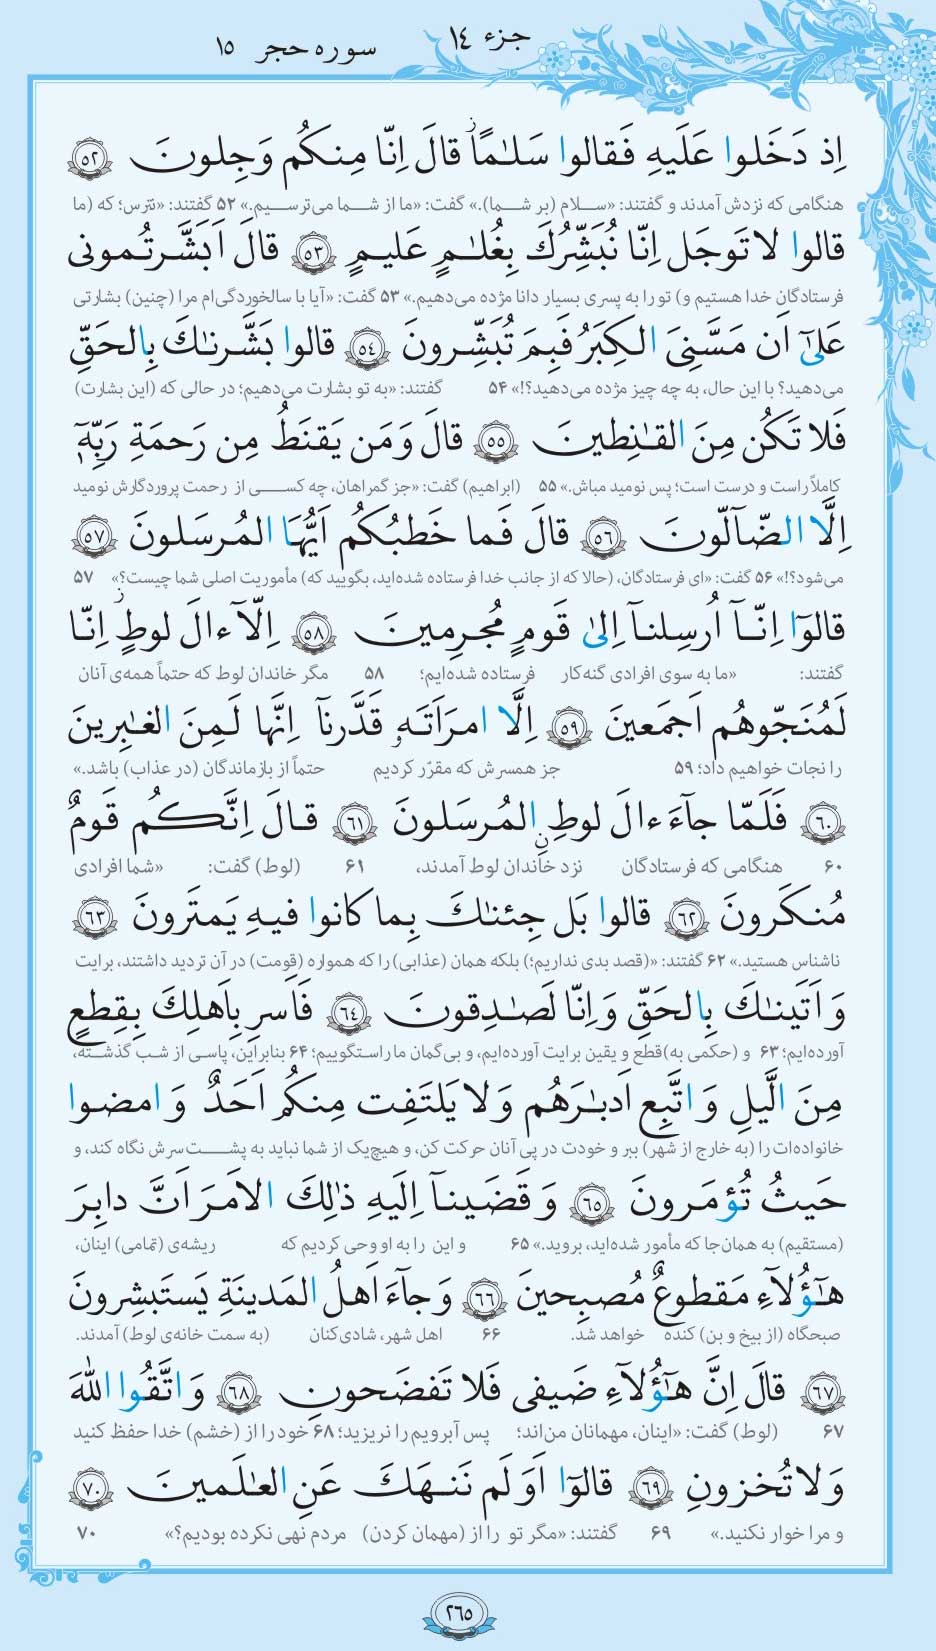 جزء ١٤
سوره حجر ١٥
اِذ دَخَلوا عَلَیهِ فَقالوا سَلـٰمًا قالَ اِنّا مِنکُم وَجِلونَ ﴿٥٢﴾
هنگامی که نزدش آمدند و گفتند: «سلام (بر شما).» گفت: «ما از شما می‌ترسیم.» ۵۲ گفتند: «نترس؛ که (ما
قالوا لا تَوجَل اِنّا نُبَشِّرُكَ بِغُلـٰمٍ عَلیمٍ ﴿٥٣﴾ قالَ اَبَشَّرتُمونی
فرستادگان خدا هستیم و) تو را به پسری بسیار دانا مژده می‌دهیم.» ۵۳ گفت: «آیا با سالخوردگی‌ام مرا (چنین) بشارتی
عَلیٰٓ اَن مَسَّنِیَ الکِبَرُ فَبِمَ تُبَشِّرونَ ﴿٥٤﴾ قالوا بَشَّرنـٰكَ بِالحَقِّ
می‌دهید؟ با این حال، به چه چیز مژده می‌دهید؟!» ۵۴ گفتند: «به تو بشارت می‌دهیم؛ در حالی که (این بشارت)
فَلا تَکُن مِنَ القـٰنِطینَ ﴿٥٥﴾ قالَ وَ مَن یَقنَطُ مِن رَحمَةِ رَبِّهٖٓ
کاملاً راست و درست است؛ پس نومید مباش.» ۵۵ (ابراهیم) گفت: «جز گمراهان، چه کسی از رحمت پروردگارش نومید
اِلَّا الضّآلّونَ ﴿٥٦﴾ قالَ فَما خَطبُکُم اَیُّهَا المُرسَلونَ ﴿٥٧﴾
می‌شود؟!» ۵۶ گفت: «ای فرستادگان، (حالا که از جانب خدا فرستاده شده‌اید، بگویید که) مأموریت اصلی شما چیست؟» ۵۷
قالوٓا اِنّـآ اُرسِلنآ اِلیٰ قَومٍ مُجرِمینَ ﴿٥٨﴾ اِلّآ ءالَ لوطٍ اِنّا
گفتند: «ما به سوی افرادی گنه‌کار فرستاده شده‌ایم؛ ۵۸ مگر خاندان لوط که حتماً همه‌ی آنان
لَمُنَجّوهُم اَجمَعینَ ﴿٥٩﴾ اِلَّا امرَاَتَهٗ قَدَّرنآ اِنَّها لَمِنَ الغـٰبِرینَ
را نجات خواهیم داد؛ ۵۹ جز همسرش که مقرّر کردیم حتماً از بازماندگان (در عذاب) باشد.»
﴿٦٠﴾ فَلَمّا جآءَ ءالَ لوطٍ المُرسَلونَ ﴿٦١﴾ قالَ اِنَّکُم قَومٌ
۶۰ هنگامی که فرستادگان نزد خاندان لوط آمدند، ۶۱ (لوط) گفت: «شما افرادی
مُنکَرونَ ﴿٦٢﴾ قالوا بَل جِئنـٰكَ بِما کانوا فیهِ یَمتَرونَ ﴿٦٣﴾
ناشناس هستید.» ۶۲ گفتند: «(قصد بدی نداریم؛) بلکه همان (عذابی) را که همواره (قومت) در آن تردید داشتند، برایت
وَ اَتَینـٰكَ بِالحَقِّ وَ اِنّا لَصـٰدِقونَ ﴿٦٤﴾ فَاَسرِ بِاَهلِكَ بِقِطعٍ
آورده‌ایم؛ ۶۳ و (حکمی به) قطع و یقین برایت آورده‌ایم، و بی‌گمان ما راستگوییم؛ ۶۴ بنابراین، پاسی از شب گذشته،
مِنَ الَّیلِ وَ اتَّبِع اَدبـٰرَهُم وَ لا یَلتَفِت مِنکُم اَحَدٌ وَ امضوا
خانواده‌ات را (به خارج از شهر) ببر و خودت در پی آنان حرکت کن، و هیچ‌یک از شما نباید به پشت سرش نگاه کند، و
حَیثُ تُؤمَرونَ ﴿٦٥﴾ وَ قَضَینآ اِلَیهِ ذٰلِكَ الاَمرَ اَنَّ دابِرَ
(مستقیم) به همان‌جا که مأمور شده‌اید، بروید.» ۶۵ و این را به او وحی کردیم که ریشه‌ی (تمامی) اینان،
هـٰٓؤُلآءِ مَقطوعٌ مُصبِحینَ ﴿٦٦﴾ وَ جآءَ اَهلُ المَدینَةِ یَستَبشِرونَ
صبحگاه (از بیخ و بن) کنده خواهد شد. ۶۶ اهل شهر، شادی‌کنان (به سمت خانه‌ی لوط) آمدند.
﴿٦٧﴾ قالَ اِنَّ هـٰٓؤُلآءِ ضَیفی فَلا تَفضَحونِ ﴿٦٨﴾ وَ اتَّقُوا اللّٰهَ
۶۷ (لوط) گفت: «اینان، مهمانان من‌اند؛ پس آبرویم را نریزید؛ ۶۸ خود را از (خشم) خدا حفظ کنید
وَ لا تُخزونِ ﴿٦٩﴾ قالوٓا اَوَ لَم نَنهَكَ عَنِ العـٰلَمینَ ﴿٧٠﴾
و مرا خوار نکنید.» ۶۹ گفتند: «مگر تو را از (مهمان کردن) مردم نهی نکرده بودیم؟» ۷۰
٢٦٥